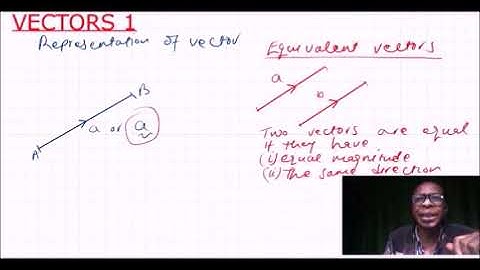 VECTORS 1
Representation of vector
B
a or a
A
Equivalent vectors
a
b
Two vectors are equal
if they have
(i) equal magnitude
(ii) The same direction